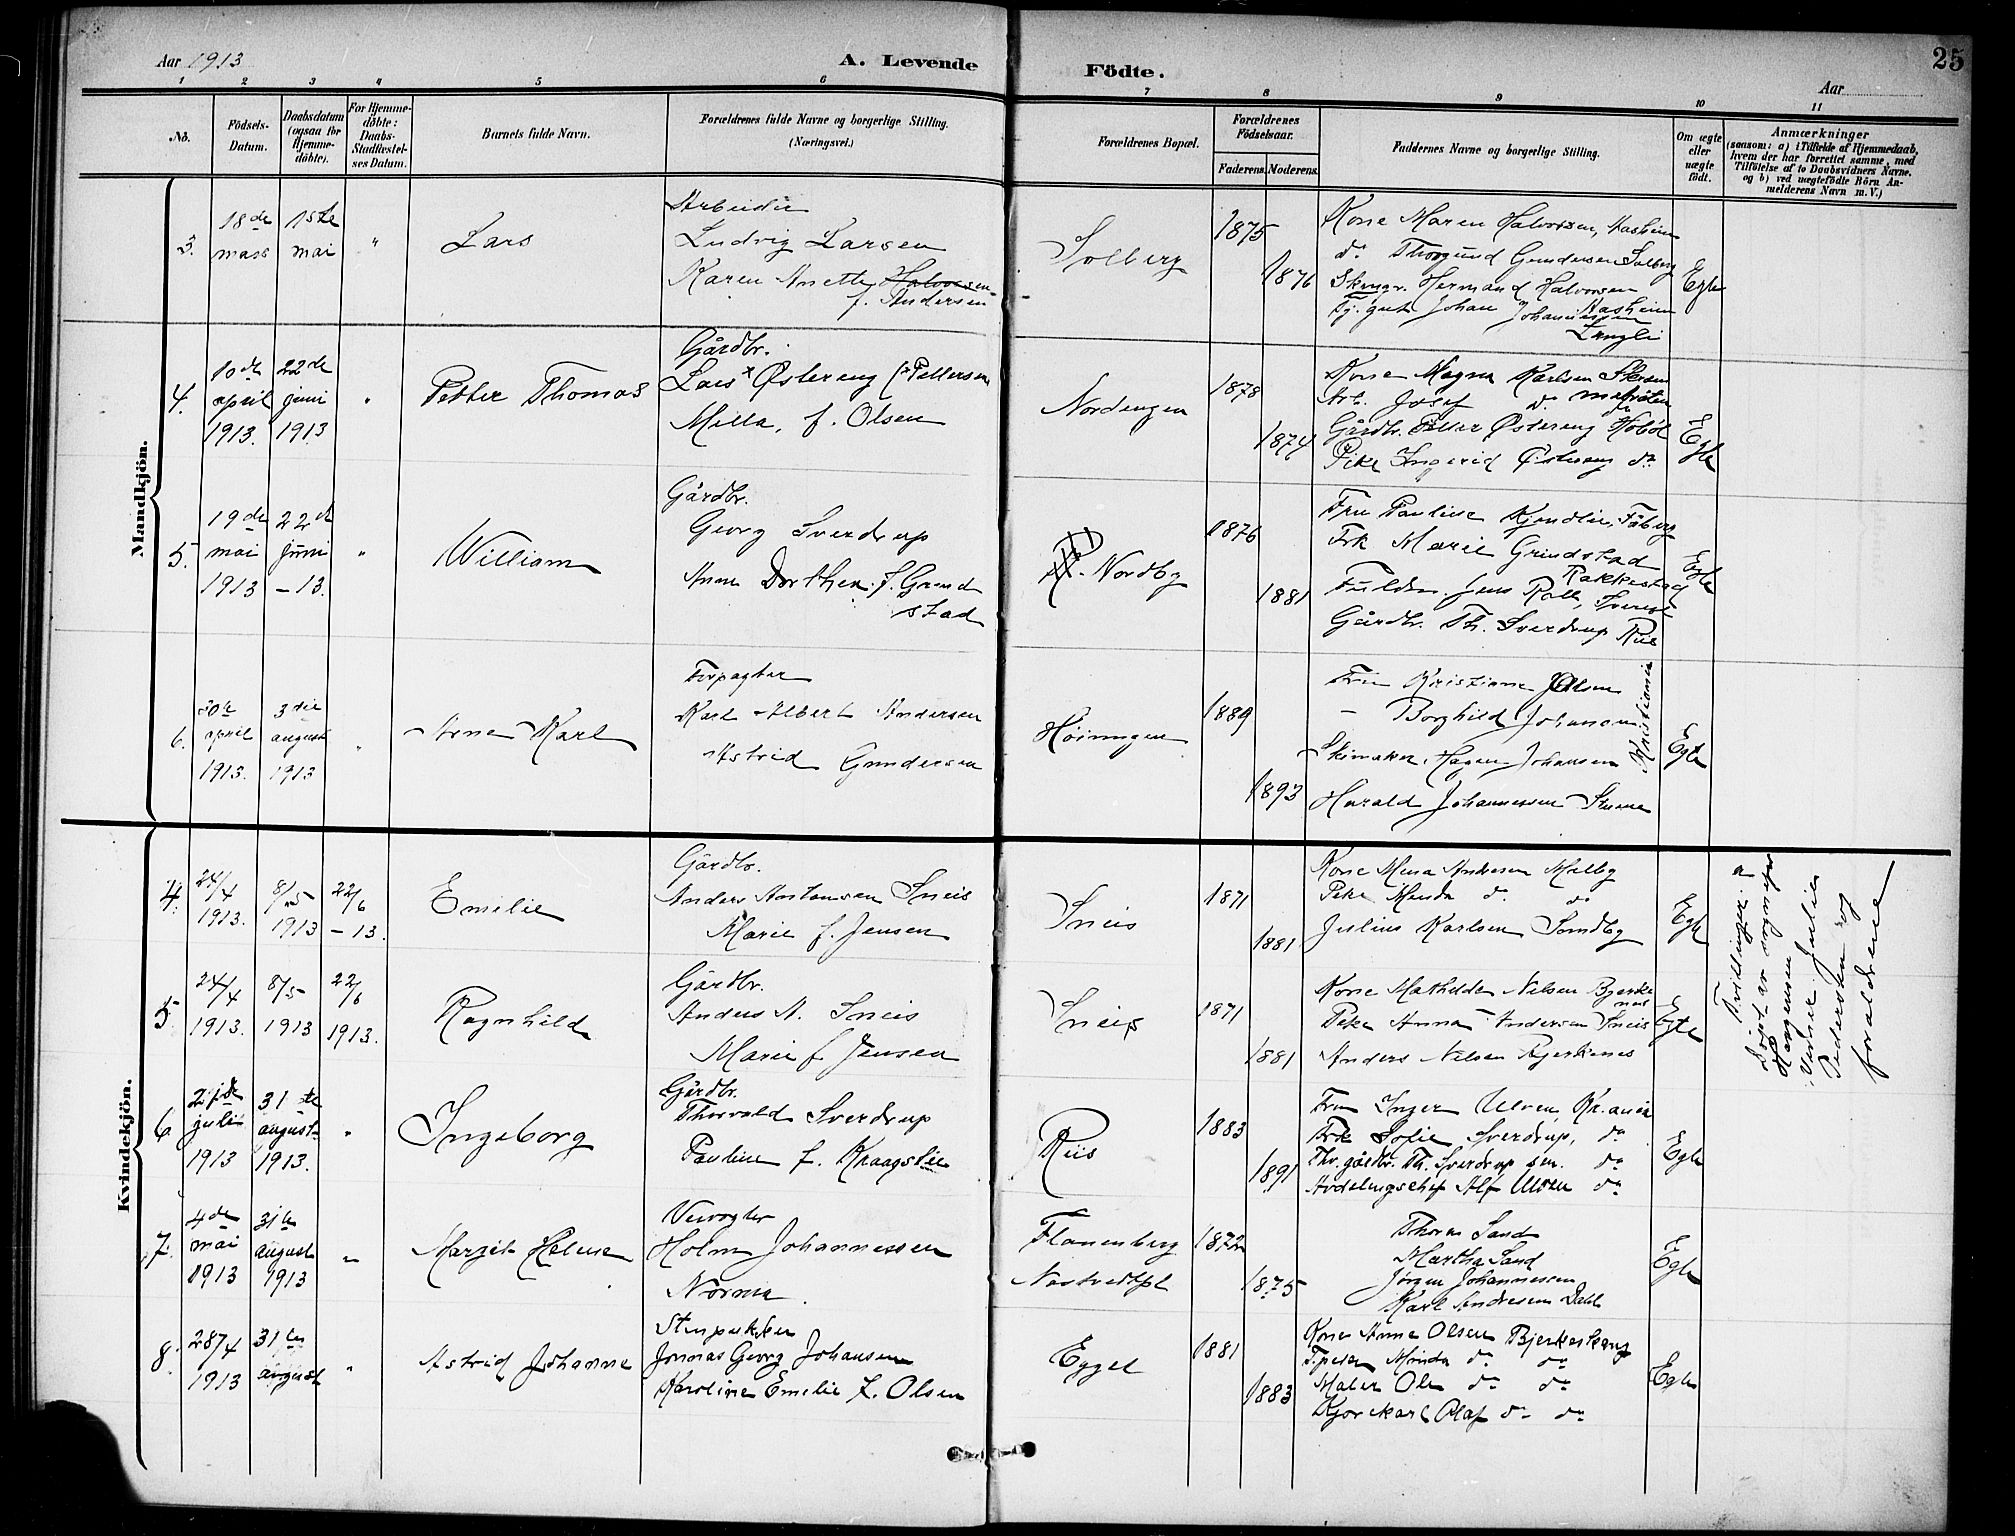 25
Aar 1913
A. Levende
Födte.
Aar
1 2 3 4 5 6 7 8 9 10 11
No.
Födsels-Datum.
Daabsdatum (ogsaa for Hjemmedöbte).
For Hjemmedöbte: Daabs-Stadfæstelses Datum.
Barnets fulde Navn.
Forældrenes fulde Navne og borgerlige Stilling.
(Næringsvei.)
Forældrenes Bopæl.
Forældrenes Födselsaar.
Faderens. Moderens.
Faddernes Navne og borgerlige Stilling.
Om ægte eller uægte født.
Anmærkninger
(saasom: a) i Tilfælde af Hjemmedaab, hvem der har forrettet samme, med Tilföielse af to Daabsvidners Navne. og b) ved uægtefödte Börn Anmelderens Navn m.V.)
Mandkjön.
3. 18de mars
1ste mai
"
Lars
Arbeider
Ludvig Larsen
Karen Anette Halvorsen
f. Andersen
Solberg
1875
1876
Kone Maren Halvorsen, Aasheim
do Thorgund Gundersen Solberg
Herman Halvorsen
Aasheim
Tj.gut Johan Johannessen
Langli
Egte
4. 10de april 1913.
22de juni 1913
"
Petter Thomas
Gårdbr.
Lars x Østereng (x Pettersen
Milla, f. Olsen
Nordengen
1878
1874
Kone Magna Karlsen
Arb. Josef do do
Gårdbr. Petter Østereng Hobøl
Pike Ingerid Østereng do
Egte
5. 19de mai 1913
22de juni -13.
"
William
Gårdbr.
Georg Sverdrup
Anne Dorthea f. Grind
stad
Nordby
1876
1881
Fru Pauline Kjendlie, Fåberg
Frk Marie Grindstad
Rakkestad
Jens
Gårdbr. Th. Sverdrup Riis
Egte
6. april 1913.
3die august 1913
"
Arne Karl
Forpagter
Karl Albert Andersen
Astrid Gundersen
Høiungen
1889
1893
Fru Kristiane Olsen
- Borghild Johansen
Skomaker Hagen Johansen
Kristiania
Harald Johannessen
Egte
Kvindekjön.
4. 24/4 1913.
8/5 1913
22/6 -13.
Emelie
Gårdbr.
Anders Antonsen Sneis
Marie f. Jensen
Sneis
1871
1881
Kone Mina Andresen Melby
Pike Menda do do
Julius Karlsen Sondby
Egte
Tvillinger. a
døpt av sogneprest
Hargensen
Vidner Julie
Pedersen og
forældrene
5. 24/4 1913.
8/5 1913
22/6 1913.
Ragnhild
Gårdbr.
Anders A. Sneis
Marie f Jensen
Sneis
1871
1881
Kone Mathilde Nilsen Bjerke
nes
Pike Anna Andersen Sneis
Anders Nilsen Bjerkenes
Egte
6 juli 1913
31te august 1913.
"
Ingeborg
Gårdbr.
Thorvald Sverdrup
Pauline f. Kraagslie
Riis
1883
1891
Fru Inger Ulven, Kr.ania
Frk Sofie Sverdrup, do
Fhv. gårdbr. Th. Sverdrup sen. do
Avdelingschef Alf Ulven do
Egte
7. 4de mai 1913
31te august 1913
"
Margit Helene
Veivogter
Holm Johannessen
Norma
Flanenberg
Nastvedtpl
1872
1875
Thorm Sand
Martha Sand
Jørgen Johannessen
Karl Andresen Dahl
Egte
8. 28/4 1913
31te august
"
Astrid Johanne
Jonnas Georg Johansen
Karoline Emelie f. Olsen
Egget
1881
1883
Kone Anne Olsen Bjerkeskaug
Minda do do
Maler Ole do do
Kjørekarl Olaf do do
Egte